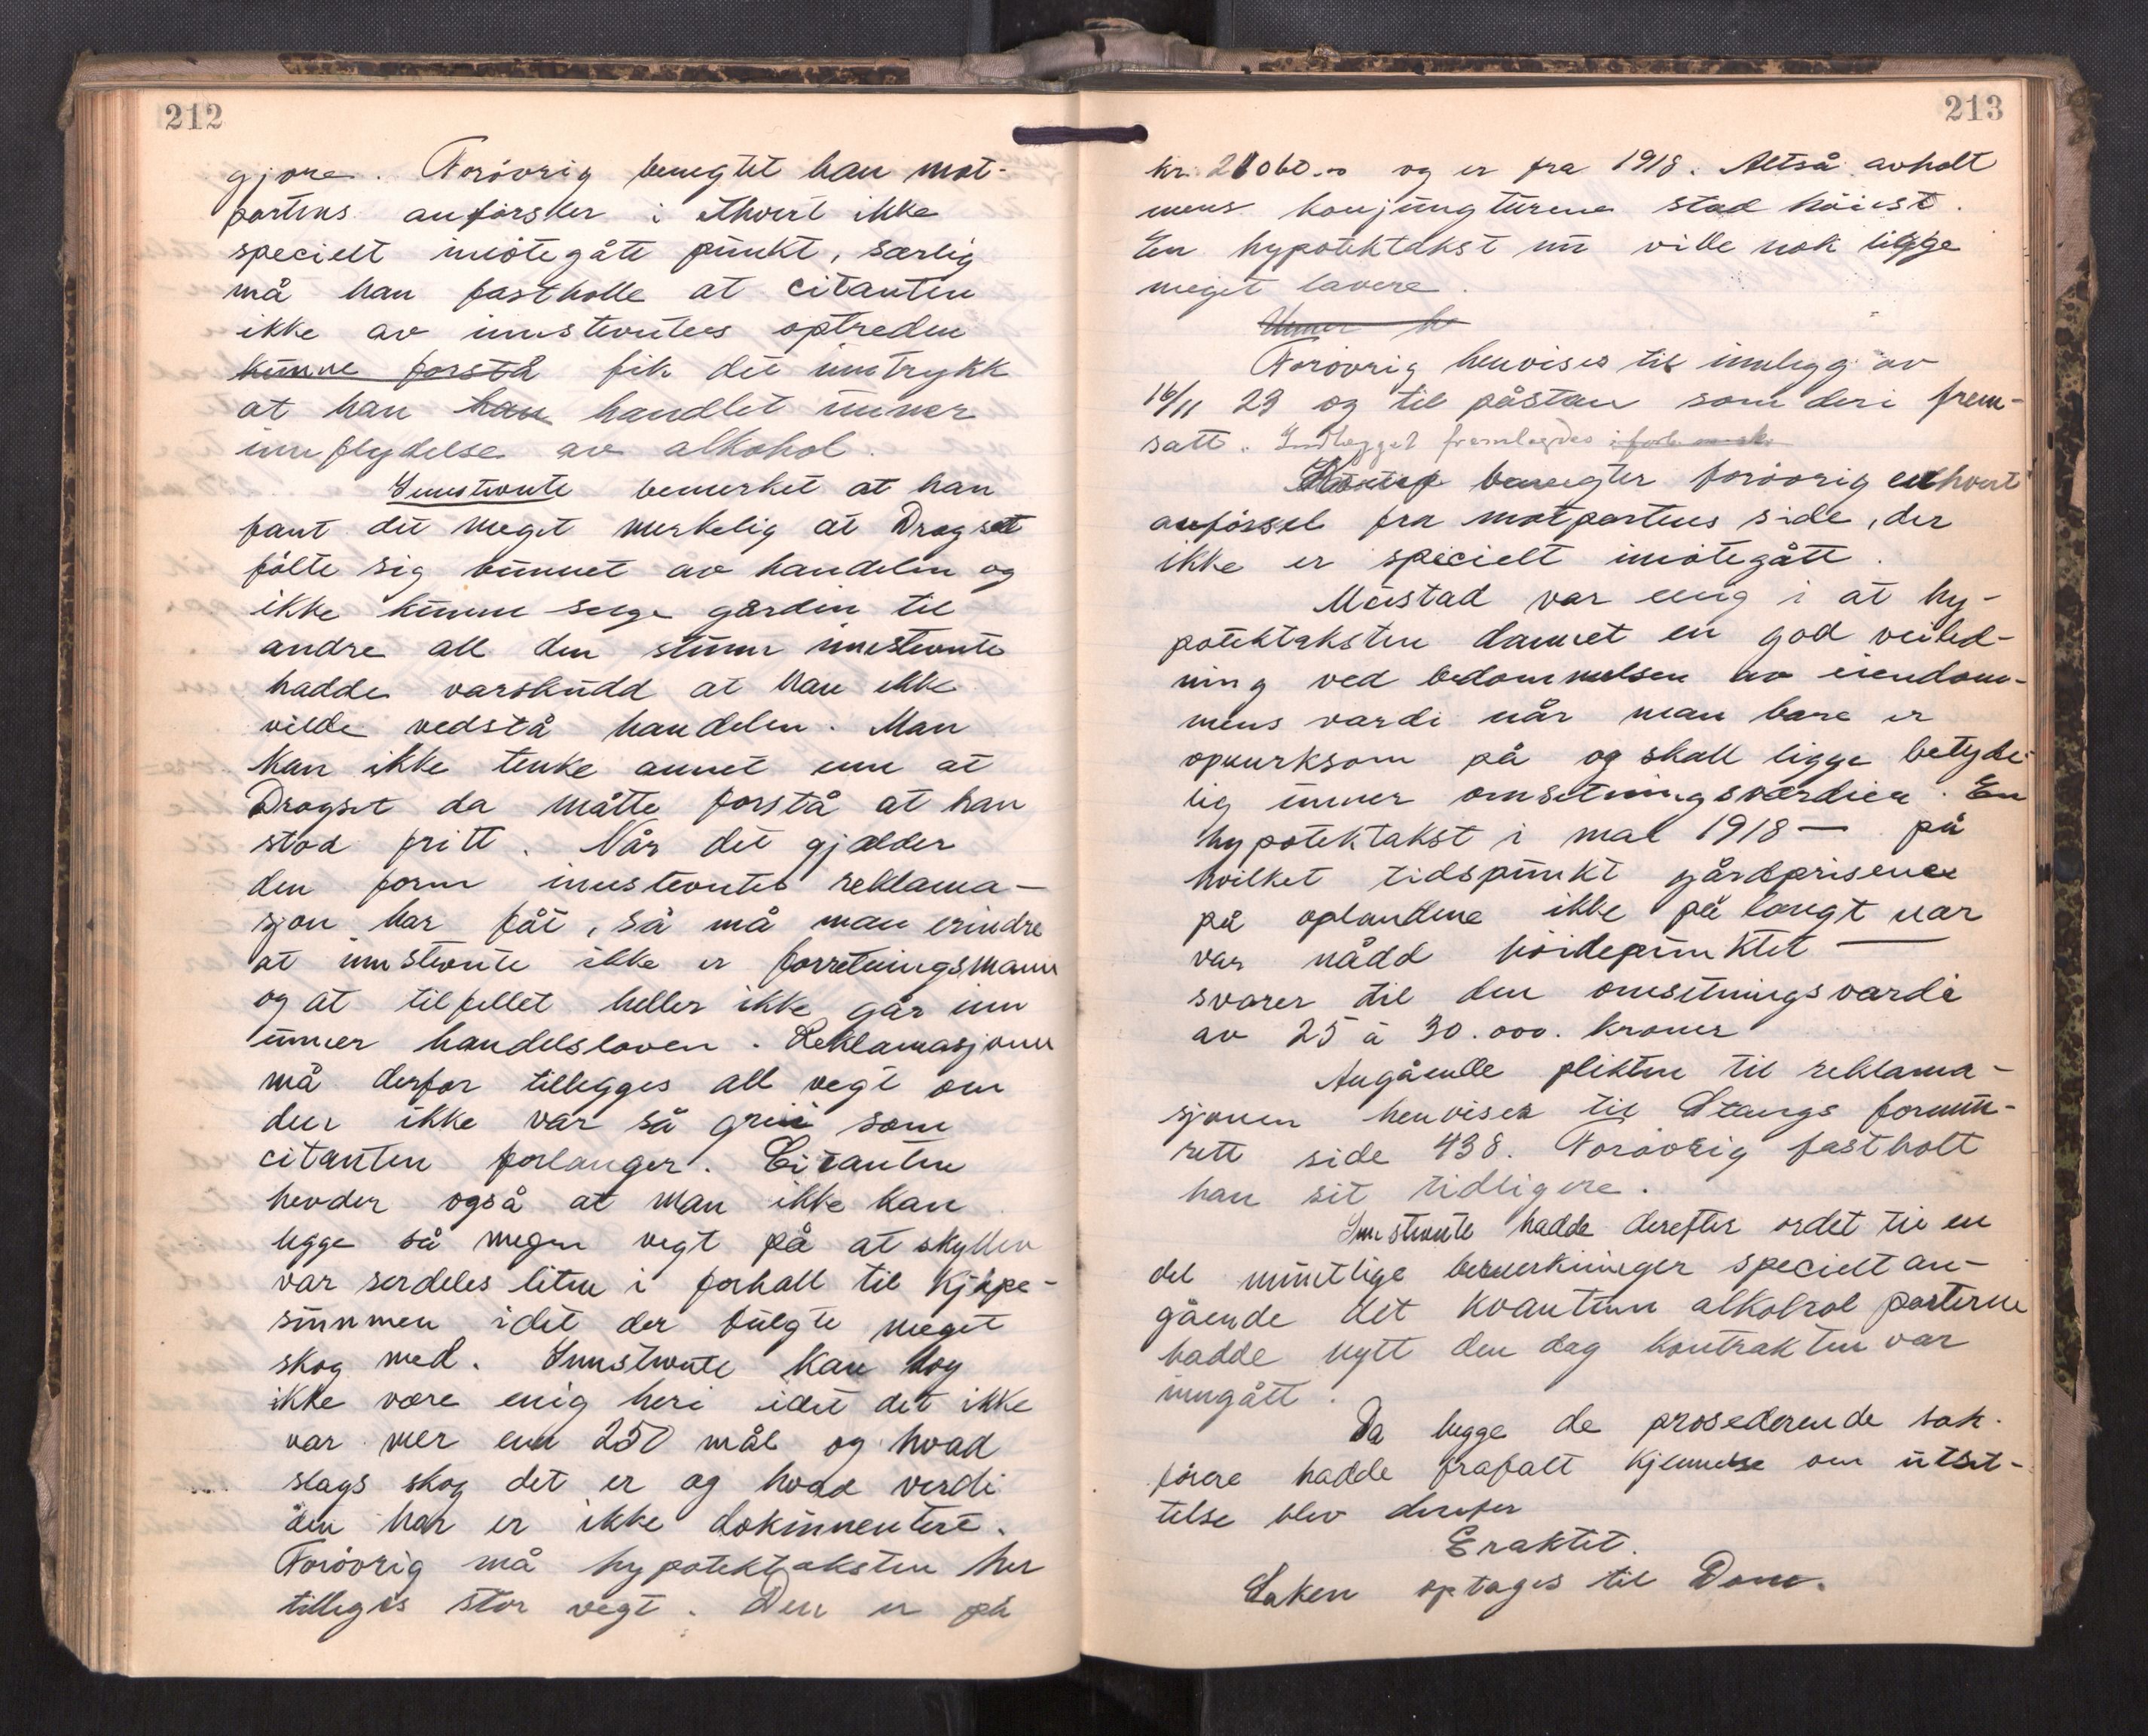 212
gjøre. Forøvrig benegtet han mot-
partens anførsler i ethvert ikke
specielt imøtegått punkt, særlig
må han fastholle at citanten
ikke av innstevntes optreden
kunne forstå fik det inntrykk
at han han handlet unner
innflydelse av alkohol.
Innstevnte bemerket at han
fant det meget merkelig at Dragset
følte sig bunnet av handelen og
ikke kunne selge gården til
andre all den stunn innstevnte
hadde varskudd at han ikke
vilde vedstå handelen. Man
kan ikke tenke annet enn at
Dragset da måtte forstå at han
stod fritt. Når det gjælder
den form innstevntes reklama-
sjon har fåt, så må man erindre
at innstevnte ikke er forretningsmann
og at tilfellet heller ikke går inn
unner handelsloven. Reklamasjonen
må derfor tillegges all vegt om
den ikke var så grei som
citanten forlanger. Citanten
hevder også at man ikke kan
legge så megen vegt på at skylden
var serdeles liten i forhall til kjøpe-
summen idet der fulgte meget
skog med. Innstevnte kan dog
ikke være enig heri idet det ikke
var mer enn 250 mål og hvad
slags skog det er og hvad verdi
den har er ikke dokumentert.
Forøvrig må hypotektaksten her
tillegges stor vegt. Den er på
213
kr. 21060.00 og er fra 1918. Altså avholt
mens konjungturene stod høiest.
En hypotektakst nu ville nok ligge
meget lavere.
Forøvrig henvises til innlegg av
16/11 23 og til påstan som deri frem-
satt. Indlegget fremlagdes
benegter forøvrig enhvert
anførsel fra motpartens side, der
ikke er specielt imøtegått.
Meistad var enig i at hy-
potektaksten dannet en god veiled-
ning ved bedømmelsen av eiendom-
mens værdi når man bare er
opmerksom på og skall ligge betyde-
lig unner omsetningsværdien. En
hypotektakst i mai 1918 — på
hvilket tidspunkt gårdprisene
på oplandene ikke på langt nær
var nådd høidepunktet —
svarer til den omsetningsværdi
av 25 à 30.000. kroner
Angående plikten til reklama-
sjonen henviser til Stangs formu-
rett side 438. Forøvrig fastholt
han sit tidligere.
Innstevnte hadde derefter ordet til en
del muntlige bemerkninger specielt an-
gående det kvantum alkohol parterne
hadde nytt den dag kontrakten var
inngått.
Da begge de prosederende sak-
førere hadde frafalt kjennelse om utset-
telse blev derefter
Eraktet.
Saken optages til Dom.